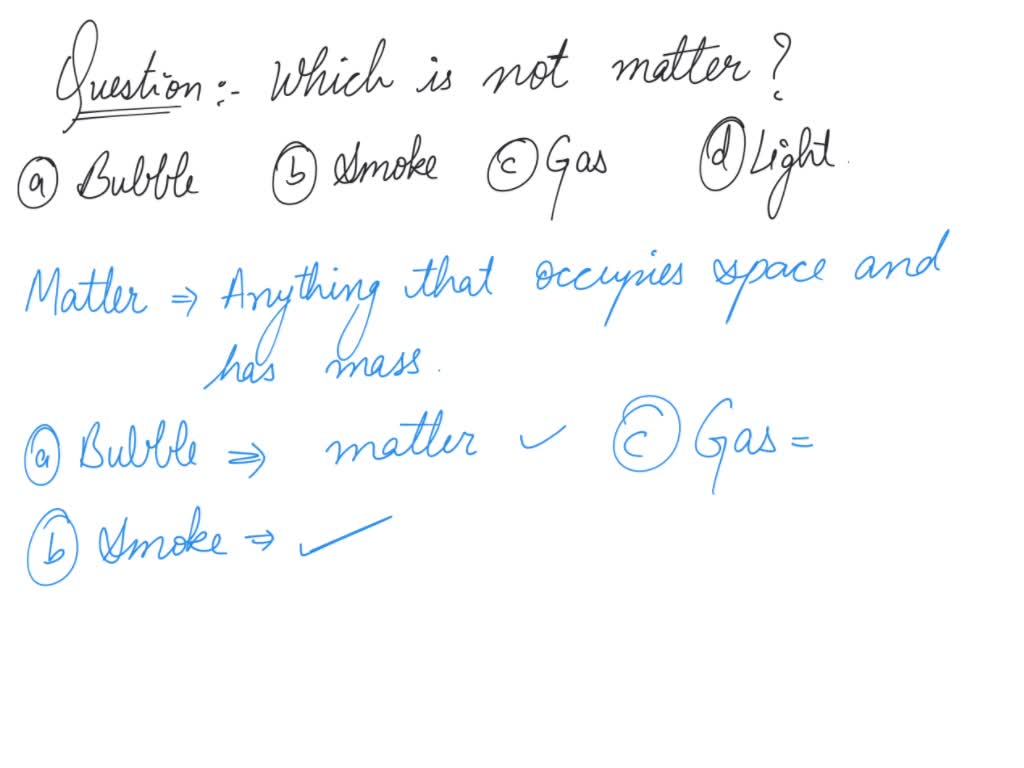 Question :- Which is not matter ?
(a) Bubble (b) Smoke (c) Gas (d) Light.
Matter ⇒ Anything that occupies space and
has mass.
(a) Bubble ⇒ matter ✓ (c) Gas =
(b) Smoke ⇒ ✓